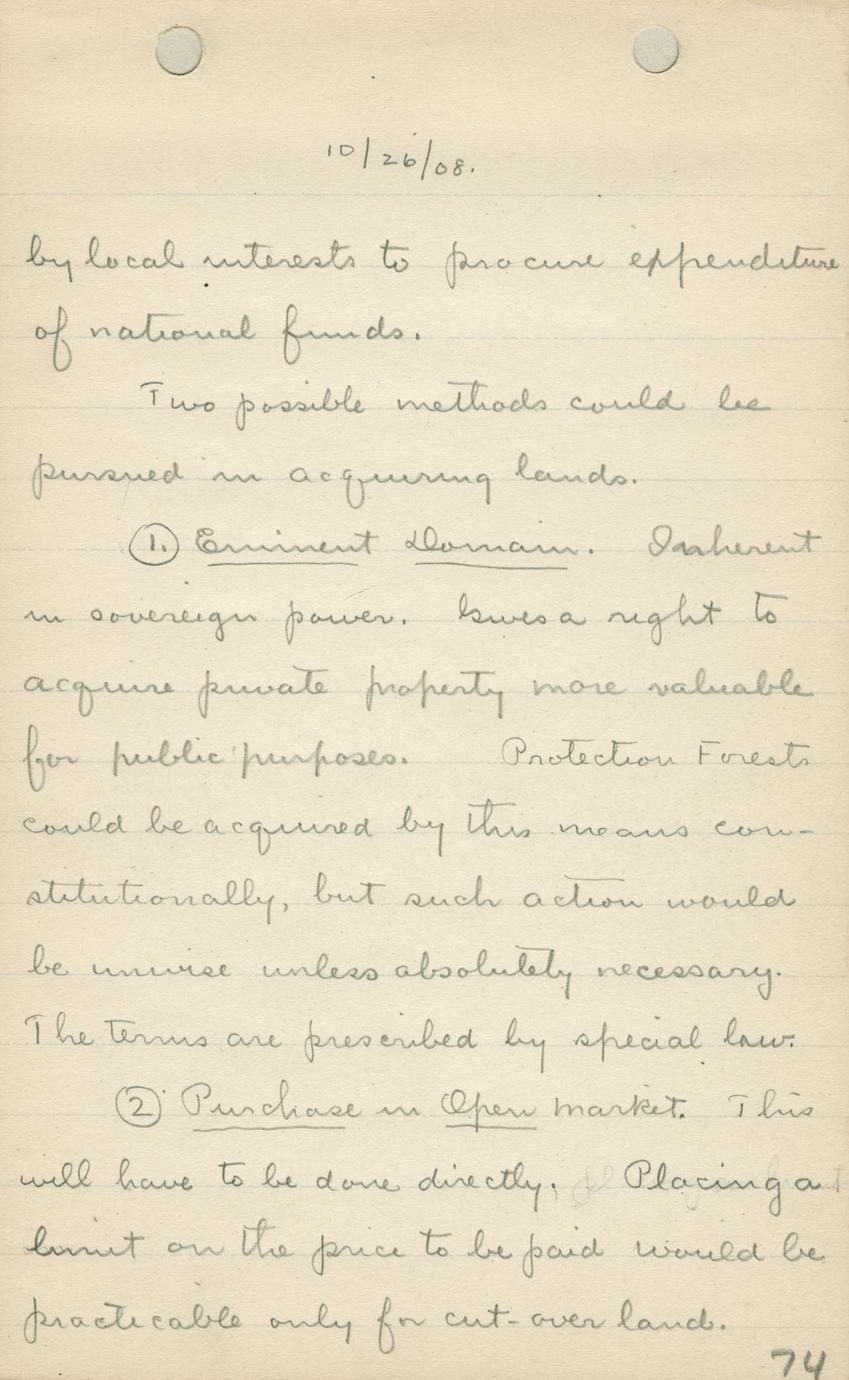 10/26/08.
by local interests to procure expenditure
of national funds.
Two possible methods could be
pursued in acquiring lands.
1. Eminent Domain. Inherent
in sovereign power. Gives a right to
acquire private property more valuable
for public purposes. Protection Forests
could be acquired by this means con-
stitutionally, but such action would
be unwise unless absolutely necessary.
The terms are prescribed by special law.
2 Purchase in Open market. This
will have to be done directly. Placing a
limit on the price to be paid would be
practicable only for cut-over land.
74